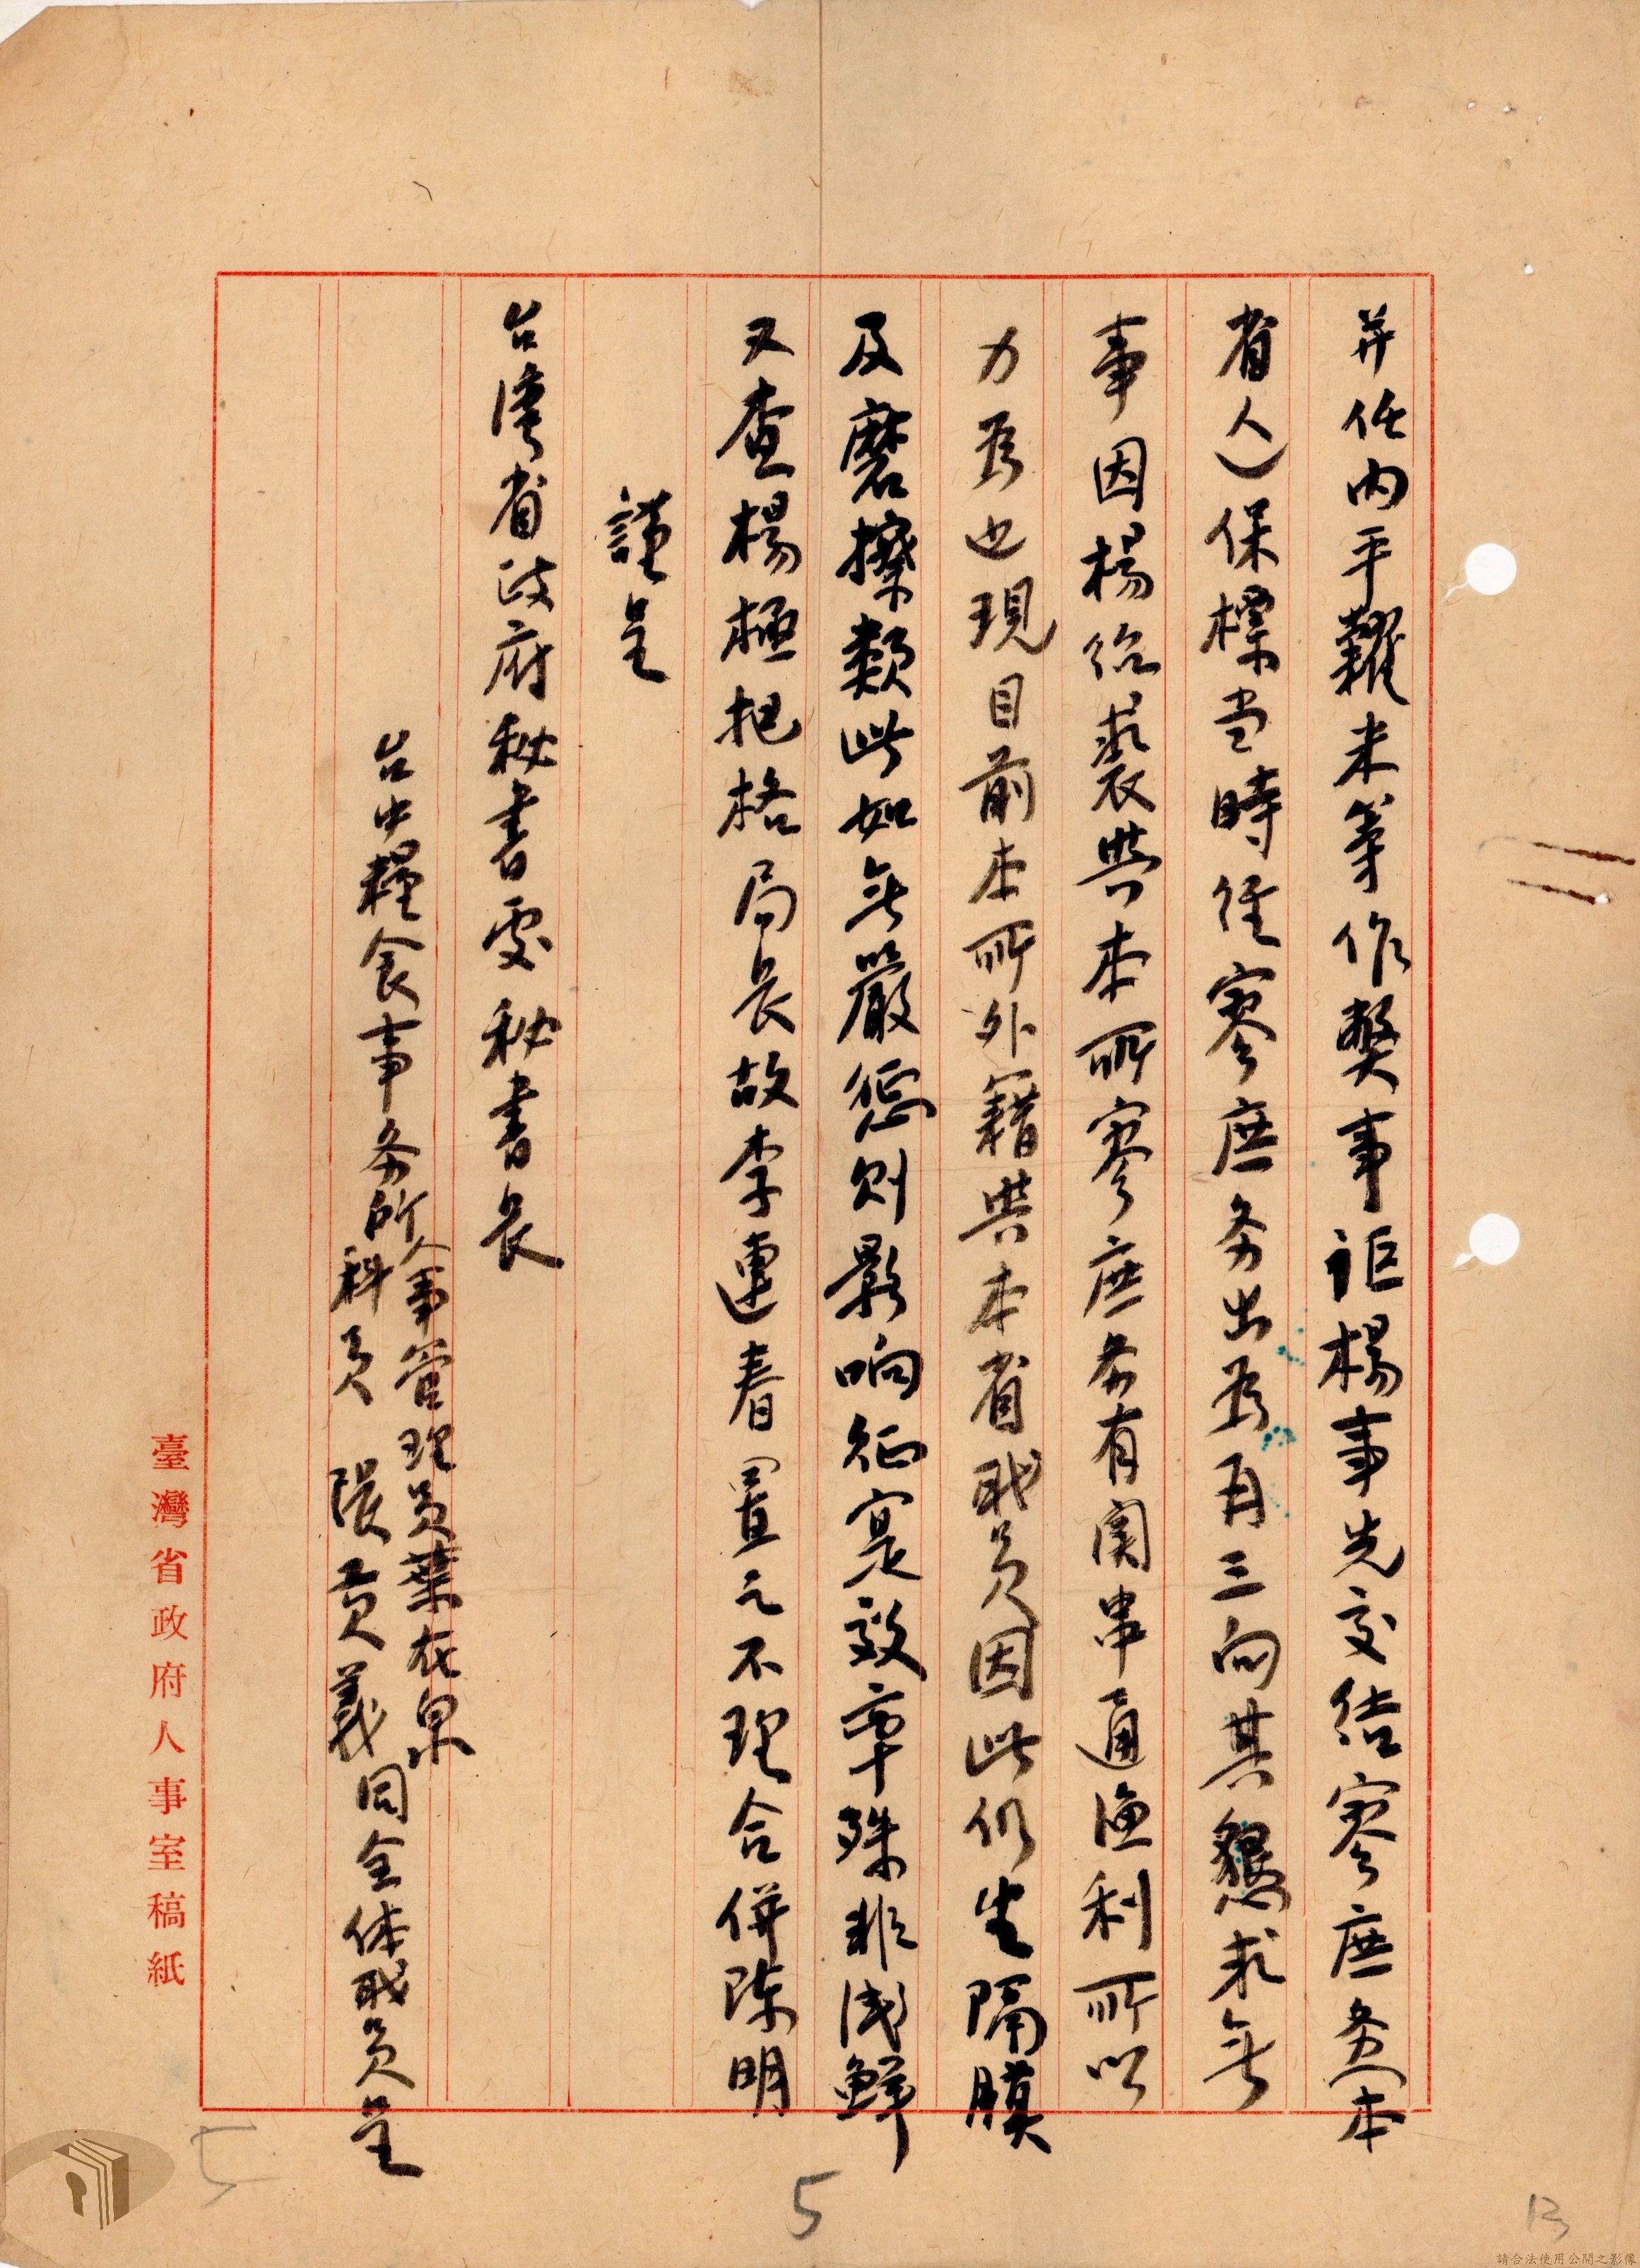 并任內平糶米等作弊事詎楊事先交結寥庶务(本
省人)保標当時任寥庶务出为再三向其懇求無
事因楊給裘與本所寥庶务有関串通漁利所以
力为也現目前本所外籍與本省职员因此仍生隔膜
及磨擦類此如無嚴懲则影响征寔效率殊非浅鲜
又查楊極把格局長故李連春置之不理合併陳明
謹呈
台湾省政府秘書处秘書長
台中糧食事务所人事管理员葉在泉
科员 張贡義同全体职员呈
臺灣省政府人事室稿紙
5
5
13
請合法使用公開之影像